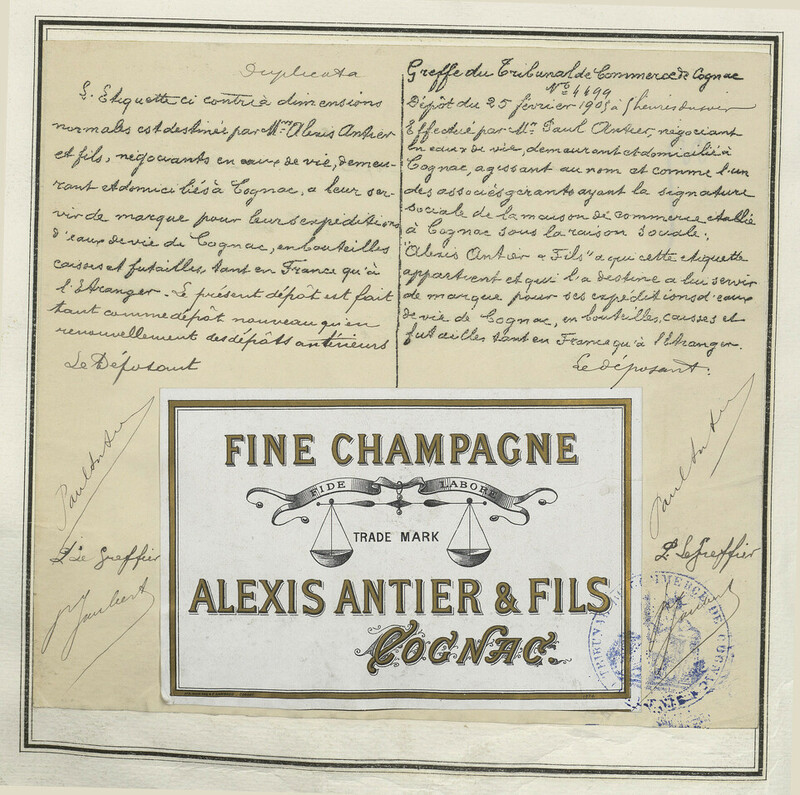 Duplicata
L'Etiquette ci contre à dimensions
normales est destinée par Mrs Alexis Antier
et fils, négociants en eaux de vie, demeu-
rant et domiciliés à Cognac, a leur ser-
vir de marque pour leurs expéditions
d'eaux de vie de Cognac, en bouteilles
caisses et futailles, tant en France qu'à
l'Etranger. Le présent dépôt est fait
tant comme dépôt nouveau qu'en
renouvellement des dépôts antérieurs
Le Déposant
Paul Antier
P. Le Greffier
Greffe du Tribunal de Commerce de Cognac
No 4699
Dépôt du 25 février 1905 à 5 heures du soir
Effectué par Mr. Paul Antier, négociant
en eaux de vie, demeurant et domicilié à
Cognac, agissant au nom et comme l'un
des associés gérants ayant la signature
sociale de la maison de commerce établie
à Cognac sous la raison sociale:
"Alexis Antier & Fils" à qui cette etiquette
appartient et qui l'a destine a lui servir
de marque pour ses expeditions d'eaux
de vie de Cognac, en bouteilles, caisses et
futailles tant en France qu'à l'Etranger.
Le déposant.
Paul Antier
P. Le Greffier
FINE CHAMPAGNE
FIDE LABORE
TRADE MARK
ALEXIS ANTIER & FILS
COGNAC.
TRIBUNAL DE COMMERCE DE COGNAC